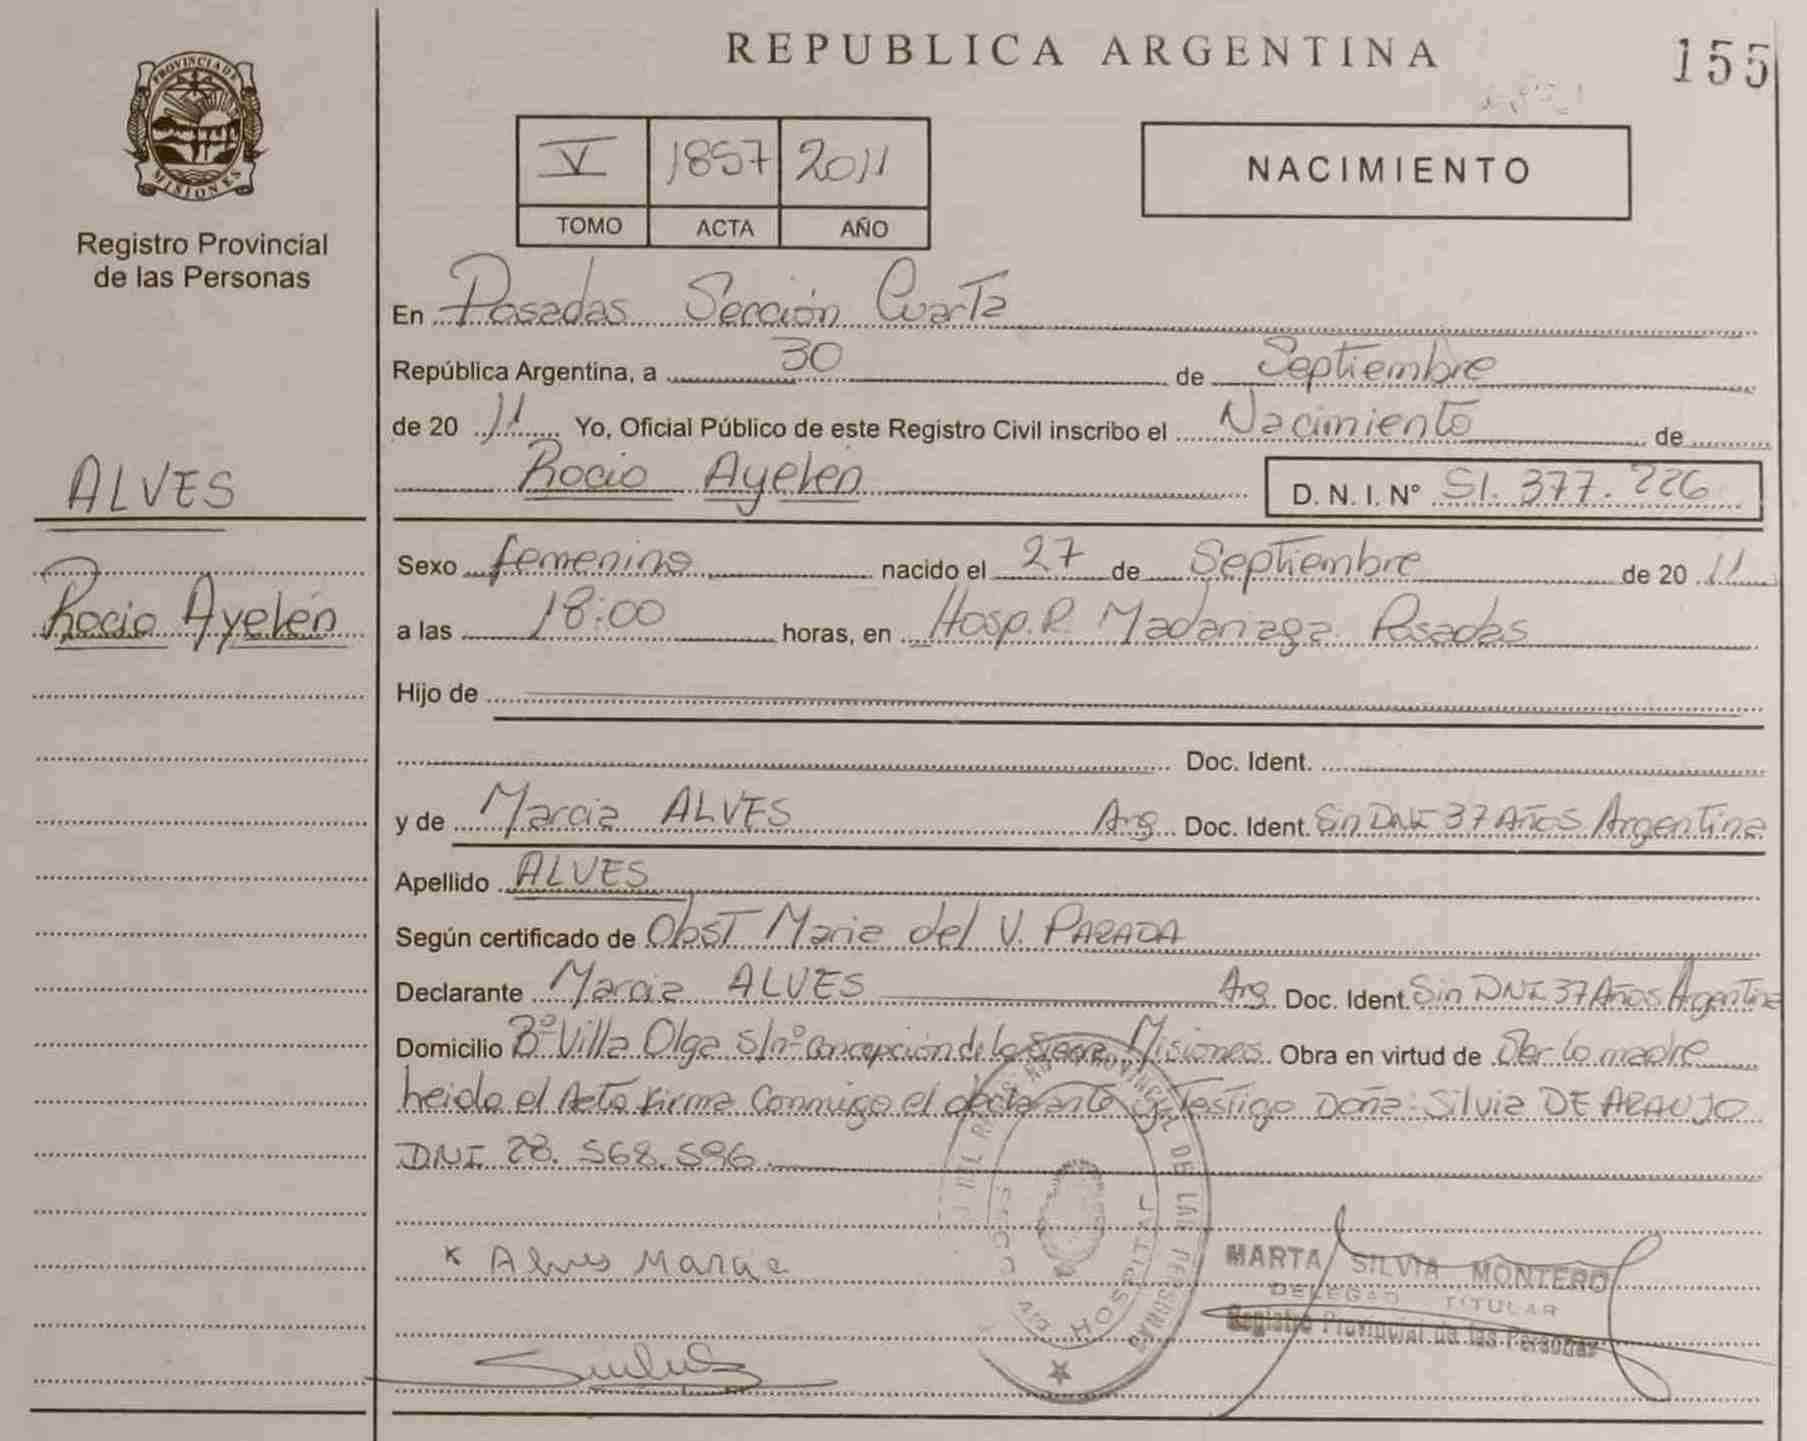 REPUBLICA ARGENTINA
155
PROVINCIA DE
MISIONES
Registro Provincial
de las Personas
V 1857 2011
TOMO ACTA AÑO
NACIMIENTO
En Posadas Sección Cuarta
República Argentina, a 30 de Septiembre
de 20 11 Yo, Oficial Público de este Registro Civil inscribo el Nacimiento de
Rocio Ayelén D. N. I. Nº 51.377.226
ALVES
Rocio Ayelén
Sexo femenino nacido el 27 de Septiembre de 20 11
a las 18:00 horas, en Hosp. R. Madariaga Posadas
Hijo de
Doc. Ident.
y de Marcia ALVES Arg Doc. Ident. Sin DNI 37 Años Argentina
Apellido ALVES
Según certificado de Obst Maria del V. PARADA
Declarante Marcia ALVES Arg Doc. Ident. Sin DNI 37 Años Argentina
Domicilio Bº Villa Olga S/nº Concepción de la Sierra Misiones Obra en virtud de Ser la madre
heido el Acto firma Conmigo el declarante y Testigo Doña: Silvia DE ARAUJO
DNI 28.568.596
x Alves Marcia
PROVINCIAL DE LAS PERSONAS
MARTA SILVIA MONTERO
DELEGAD TITULAR
Registro Provincial de las Personas